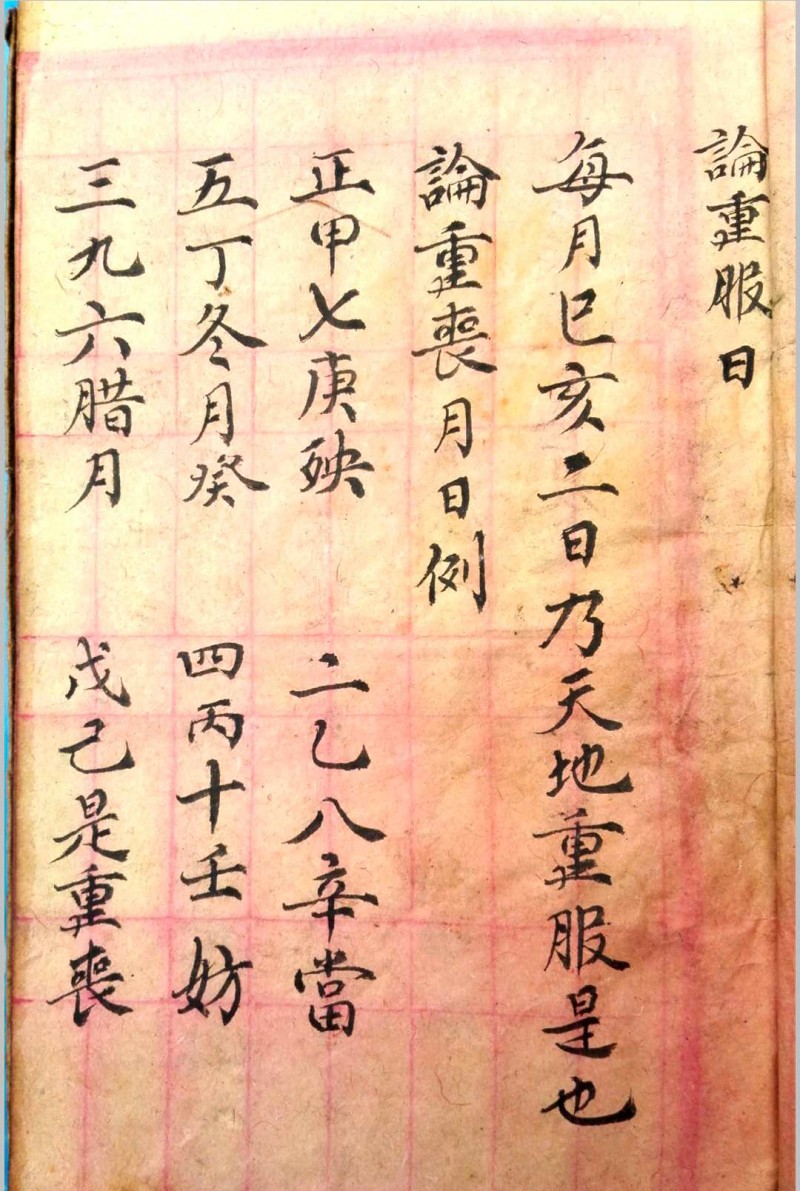 論重服日
每月巳亥二日乃天地重服是也
論重喪月日例
正甲七庚殃　二乙八辛當
五丁冬月癸　四丙十壬妨
三九六腊月　戊己是重喪